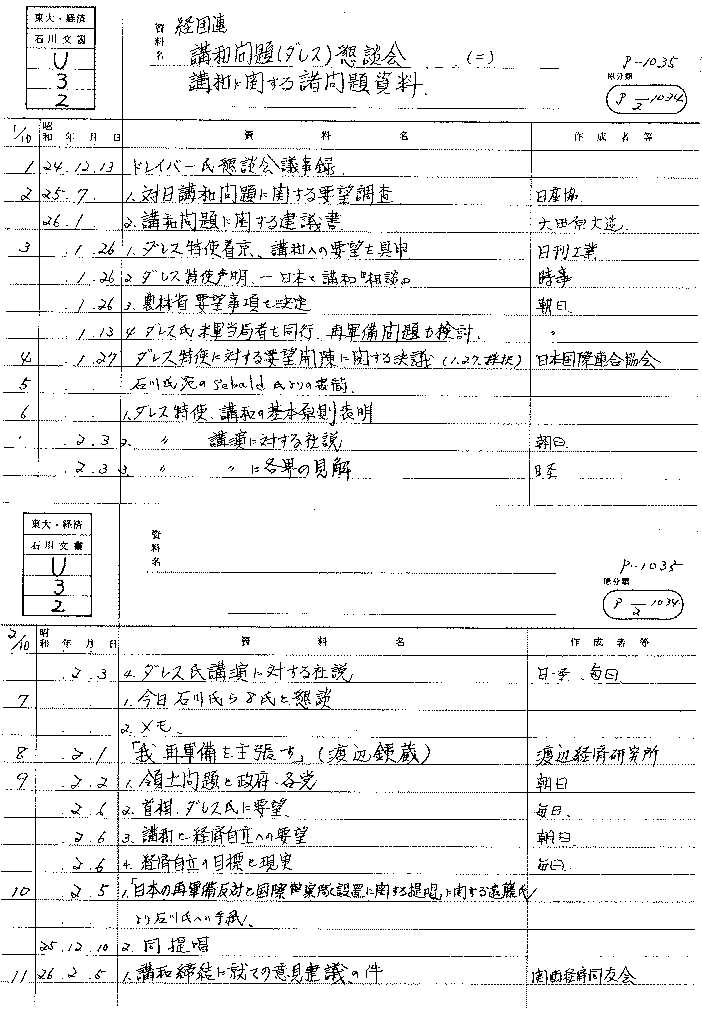 東大・経済
石川文書
U
3
2
資料名
経団連
講和問題(ダレス)懇談会 (二)
講和に関する諸問題資料
P-1035
原分類
P 2-1034
1/10 昭和 年 月 日 資料名 作成者等
1 24.12.13 ドレイパー氏懇談会議事録
2 25.7. 1.対日講和問題に関する要望調査 日産協
26.1 2.講和問題に関する建議書 大田原文造
3 .1.26 1.ダレス特使着京、講和への要望を具申 日刊工業
.1.26 2.ダレス特使声明、―日本と講和『相談』 時事
.1.26 3.農林省要望事項を決定 朝日
.1.13 4.ダレス氏米軍当局者も同行、再軍備問題も検討 〃
4 .1.27 ダレス特使に対する要望開陳に関する決議(1.27.採択) 日本国際連合協会
5 石川氏宛のSebald氏よりの書簡
6 1.ダレス特使、講和の基本原則表明
.2.3 2. 〃 講演に対する社説 朝日
.2.3 3. 〃 〃 に各界の見解 日経
東大・経済
石川文書
U
3
2
資料名
P-1035
原分類
P 2-1034
2/10 昭和 年 月 日 資料名 作成者等
.2.3 4.ダレス氏講演に対する社説 日経、毎日
7 1.今日石川氏ら8氏と懇談
2.メモ
8 .2.1 「我再軍備を主張す」(渡辺銕蔵) 渡辺経済研究所
9 .2.2 1.領土問題と政府・各党 朝日
.2.6 2.首相、ダレス氏に要望 毎日
.2.6 3.講和と経済自立への要望 朝日
.2.6 4.経済自立の目標と現実 毎日
10 .2.5 1.「日本の再軍備反対と国際警察隊設置に関する提唱」に関する遠藤氏
より石川氏への手紙
25.12.10 2.同提唱
11 26.2.5 1.講和締結に就ての意見建議の件 関西経済同友会